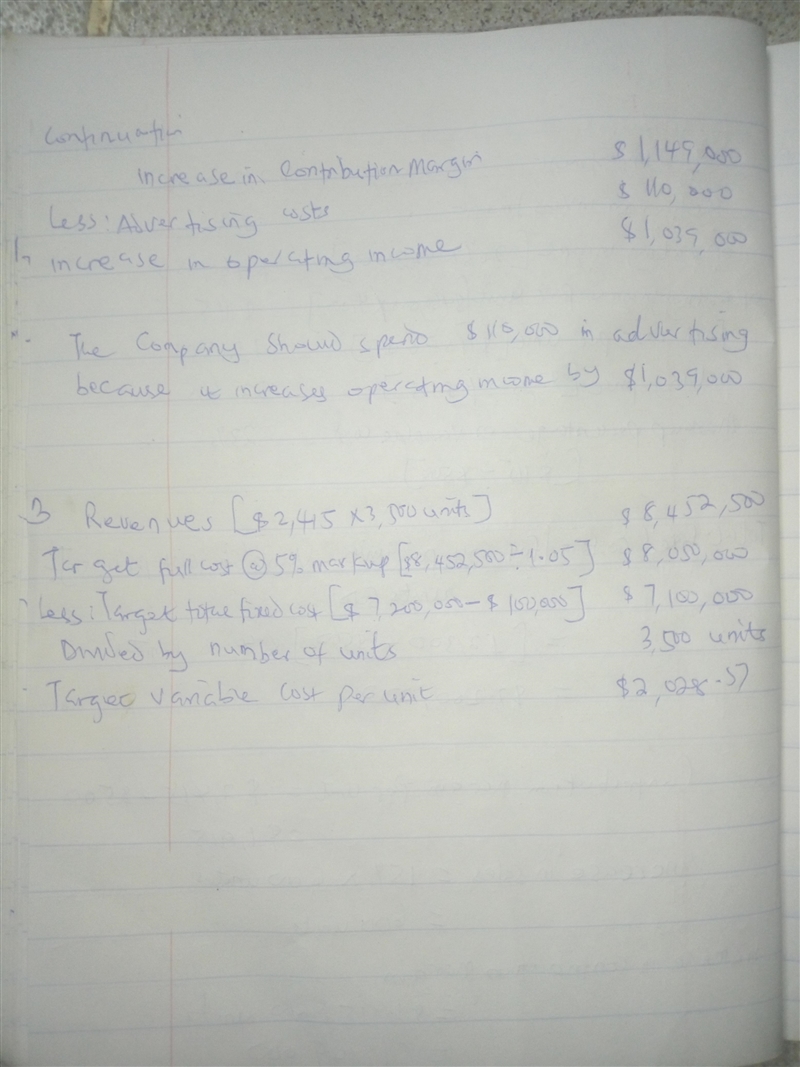 Continuation
Increase in Contribution Margin $1,149,000
Less: Advertising costs $ 110,000
Increase in operating income $1,039,000
The Company Should spend $110,000 in advertising
because it increases operating income by $1,039,000
3 Revenues [$2,415 x 3,500 units] $8,452,500
Target full cost @ 5% markup [$8,452,500 ÷ 1.05] $8,050,000
Less: Target total fixed cost [$7,200,000 - $100,000] $7,100,000
Divided by number of units 3,500 units
Target variable cost per unit $2,028.57